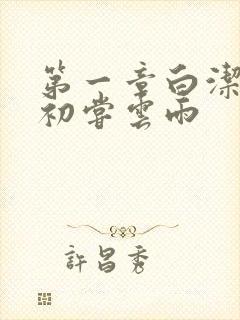 第一章白潔
初嘗雲雨
許昌秀